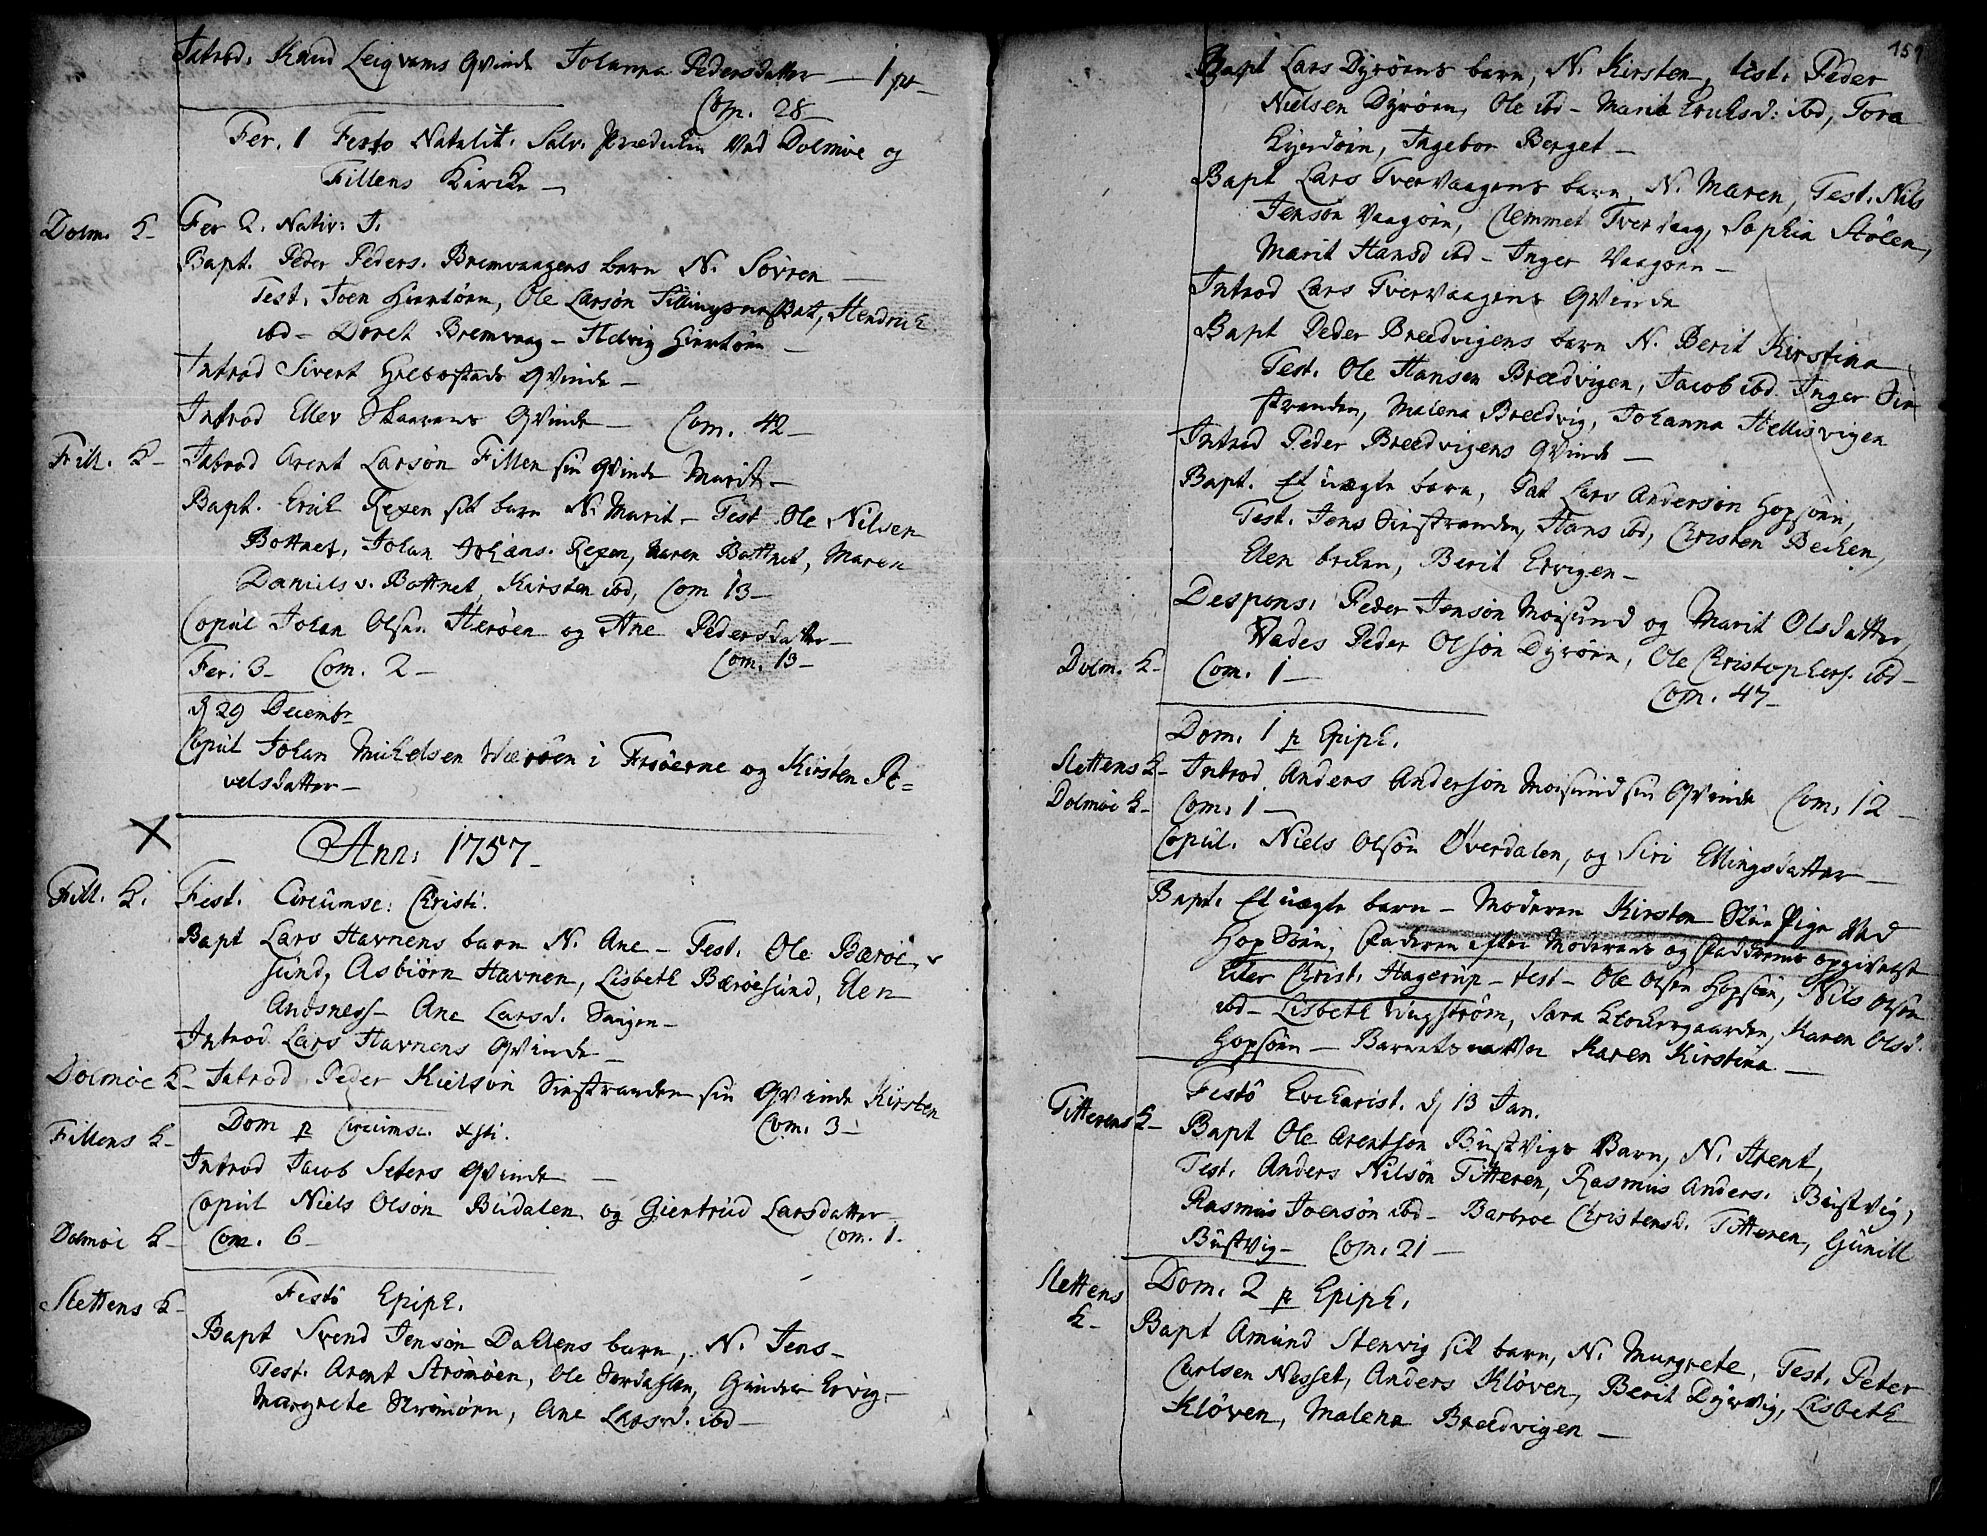 Introd. Knud Leigvams Qvinde Johanna Pedersdatter — 1 pr —
Com. 28 —
Fer. 1 Festo Natalit. Salv. Ved Dolmøe og
Fillens Kirche —
Dolm. K — Fer 2. Nativ: J.
Bapt. Peder Peders. Bremvaagens barn N. Søvren —
Test. Joen Hiertøen, Ole Larsøn, Hendrich
ibd — Doret Bremvaag — Helvig Hiertøen —
Introd Sivert Grebostads Qvinde —
Introd Ellev Skaarens Qvinde — Com. 42 —
Fill. K — Introd Arent Larsøn Fillen sin Qvinde Marit —
Bapt. Erich Rexen sit barn N. Marit — Test Ole Nilsen
Bottnet, Johan Johans. Rexen, Maren Bottnet, Maren
Daniels d. Bottnet, Kirsten ibd, Com 13 —
Copul Johan Olsen Herøen og Ane Pedersdatter —
Fer. 3 — Com. 2 — Com. 13 —
d 29 Decembr
Copul Johan Michelsen i Frøerne og Kirsten Pe=
velsdatter —
Ann: 1757 —
Fill. K. Fest. Circumsc: Christi.
Bapt Lars Havnens barn N. Ane — Test. Ole Bærøe
sund, Asbiørn Havnen, Lisbeth Bærøesund, Elen
Andsness — Ane Larsd. Saugen —
Introd Lars Havnens Qvinde —
Dolmøe K — Introd Peder Kielsøn Sinstranden sin Qvinde Kirsten
Com. 3 —
Fillens K — Dom p Circumsc. Xsti.
Introd Jacob Seters Qvinde —
Copul Niels Olsøn Budalen og Giertrud Larsdatter —
Dolmøe K — Com. 6 — Com. 1.
Slettens K — Festo Epiph.
Bapt Svend Jensøn Dallens barn, N. Jens —
Test. Arent Strømøen, Ole Sørdahlen, Gunder Ervig,
Margrete Strømøen, Ane Larsd. ibd —
159
Bapt Lars Dyrøens barn, N. Kirsten, test. Peder
Nielsen Dyrøen, Ole ibd — Marit Erichsd: ibd, Tora
Ingebor Berget —
Bapt Lars Tvervaagens barn, N. Maren, Test. Nils
Jensøn Vaagøen, Clemmet Tvervaag, Sophia Stølen,
Marit Hansd ibd — Inger Vaagøen —
Introd Lars Tvervaagens Qvinde
Bapt Peder Breedvigens barn N. Berit Kirstina
Test. Ole Hansen Breedvigen, Jacob ibd. Inger Sin
stranden, Malena Breedvig, Johanna Hellisvigen
Introd Peder Breedvigens Qvinde —
Bapt. Et uægte barn, Pat Lars Andersøn Hopsøen,
Test. Jens Sinstranden, Hans ibd, Christen Becken,
Elen becken, Berit Ervigen —
Despons. Peder Jensøn Moesund og Marit Olsdatter
Vades Peder Olsøn Dyrøen, Ole Christophers. ibd —
Dolm. K — Com. 1 — Com. 47 —
Dom. 1 p Epiph.
Slettens K — Introd Anders Andersøn Moesund sin Qvinde Com. 12 —
Dolmøe K — Com. 1 —
Copul. Niels Olsøn Øverdalen, og Siri Ellingsdatter —
Bapt. Et uægte barn — Moderen Kirsten Pige Ved
Hopsøen, Faderen efter Moderens og Faddrenes opgivelse
Christ. Hagerup — test — Ole Olsen Hopsøen, Nils Olsøn
ibd — Lisbeth Vingstrøm, Sara Klockergaarden, Karen Olsd.
Hopsøen — Barnets Karen Kirstina —
Festo Eucharist. d 13 Jan.
Titterens K — Bapt Ole Arentsøn Bustvigs Barn, N. Arent,
Test. Anders Nilsøn Titteren, Rasmus Anders. Bustvig,
Rasmus Joensøn ibd — Barbroe Christensd. Titteren, Gunill
Bustvig — Com. 21 —
Slettens K — Dom. 2 p Epiph.
Bapt Amund Stenvig sit barn, N. Margrete, Test. Peter
Carlsen Nesset, Anders Kløven, Berit Dyrvig, Lisbeth
Kløven, Malena Breedvigen —